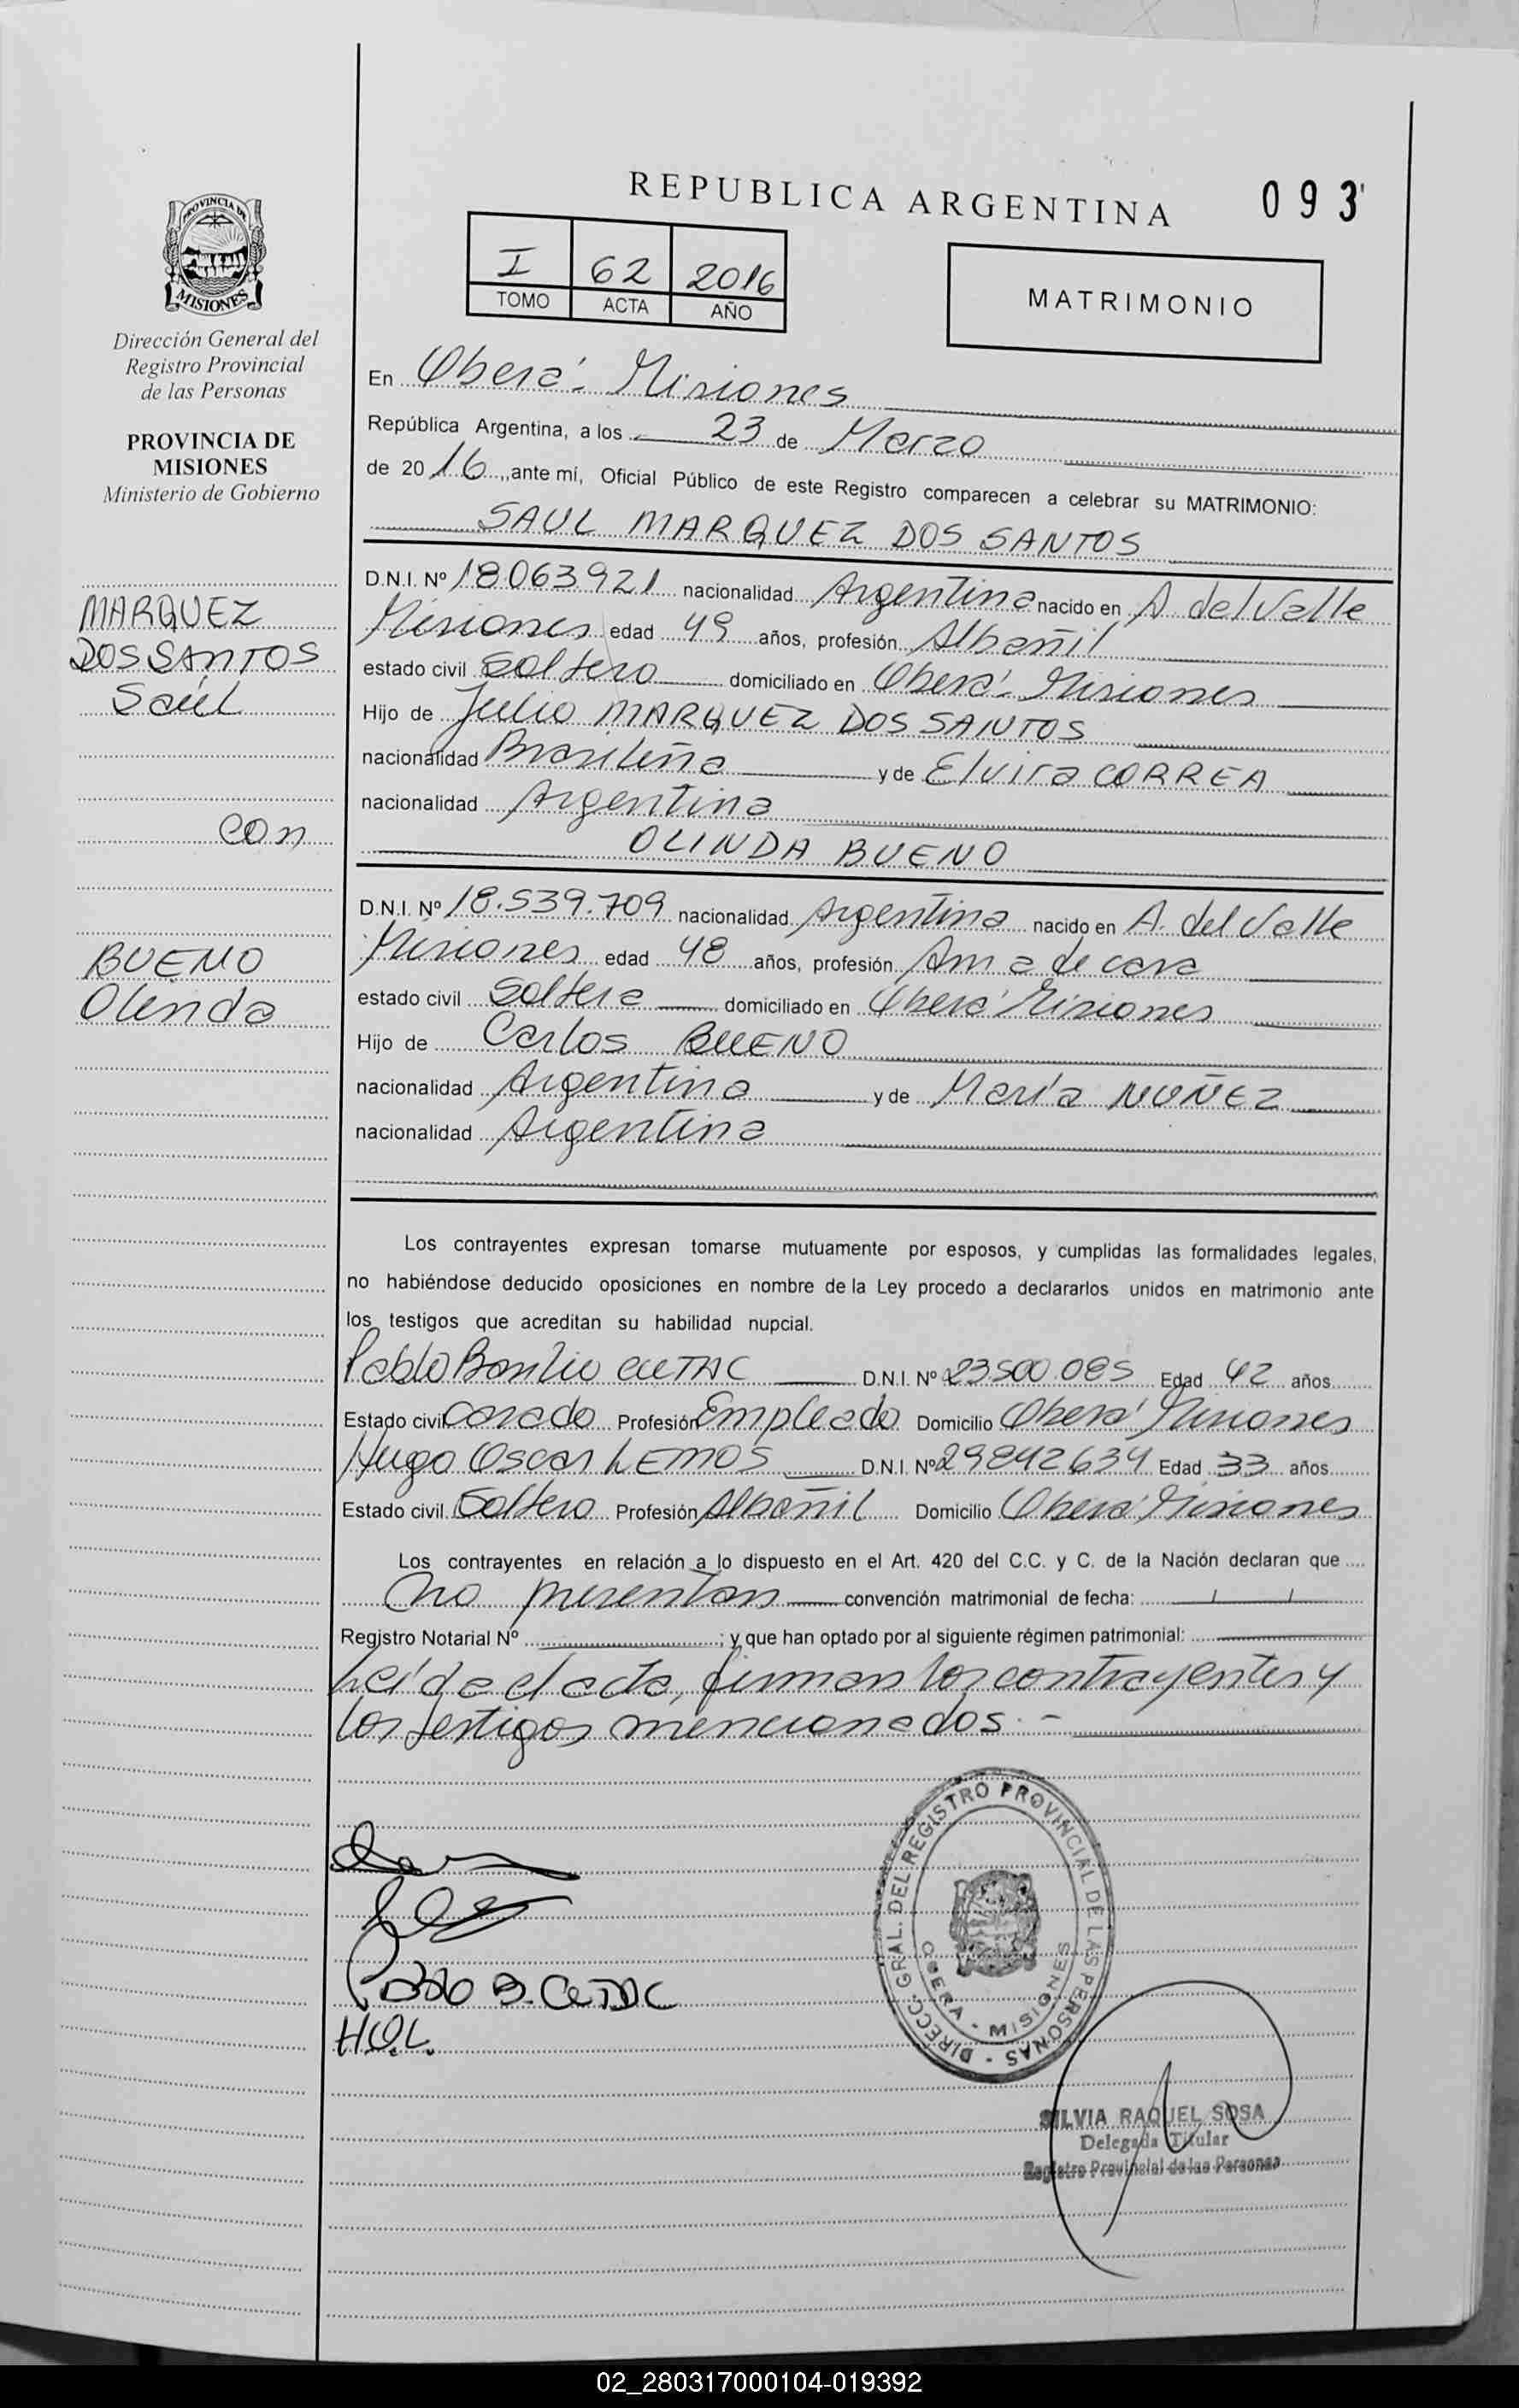 REPUBLICA ARGENTINA
093
PROVINCIA DE
MISIONES
I 62 2016
TOMO ACTA AÑO
MATRIMONIO
Dirección General del
Registro Provincial
de las Personas
PROVINCIA DE
MISIONES
Ministerio de Gobierno
MARQUEZ
DOS SANTOS
Saúl
con
BUENO
Olinda
En Oberá - Misiones
República Argentina, a los 23 de Marzo
de 2016, ante mí, Oficial Público de este Registro comparecen a celebrar su MATRIMONIO:
SAUL MARQUEZ DOS SANTOS
D.N.I. Nº 18.063.921 nacionalidad Argentina nacido en A. del Valle
Misiones edad 49 años, profesión Albañil
estado civil Soltero domiciliado en Oberá - Misiones
Hijo de Julio MARQUEZ DOS SANTOS
nacionalidad Brasileña y de Elvira CORREA
nacionalidad Argentina
OLINDA BUENO
D.N.I. Nº 18.539.709 nacionalidad Argentina nacido en A. del Valle
Misiones edad 48 años, profesión Ama de casa
estado civil Soltera domiciliado en Oberá Misiones
Hijo de Carlos BUENO
nacionalidad Argentina y de María NUÑEZ
nacionalidad Argentina
Los contrayentes expresan tomarse mutuamente por esposos, y cumplidas las formalidades legales,
no habiéndose deducido oposiciones en nombre de la Ley procedo a declararlos unidos en matrimonio ante
los testigos que acreditan su habilidad nupcial.
Pablo Basilio CUTAC D.N.I. Nº 23500.085 Edad 42 años
Estado civil Casado Profesión Empleado Domicilio Oberá Misiones
Hugo Oscar LEMOS D.N.I. Nº 29842634 Edad 33 años
Estado civil Soltero Profesión Albañil Domicilio Oberá Misiones
Los contrayentes en relación a lo dispuesto en el Art. 420 del C.C. y C. de la Nación declaran que
no presentan convención matrimonial de fecha: / /
Registro Notarial Nº ; y que han optado por al siguiente régimen patrimonial:
Leída el acta, firman los contrayentes y
los testigos mencionados. -
Pablo B. Cutac
H.O.L.
DIRECC. GRAL. DEL REGISTRO PROVINCIAL DE LAS PERSONAS -
OBERA - MISIONES
SILVIA RAQUEL SOSA
Delegada Titular
Registro Provincial de las Personas
02_280317000104-019392